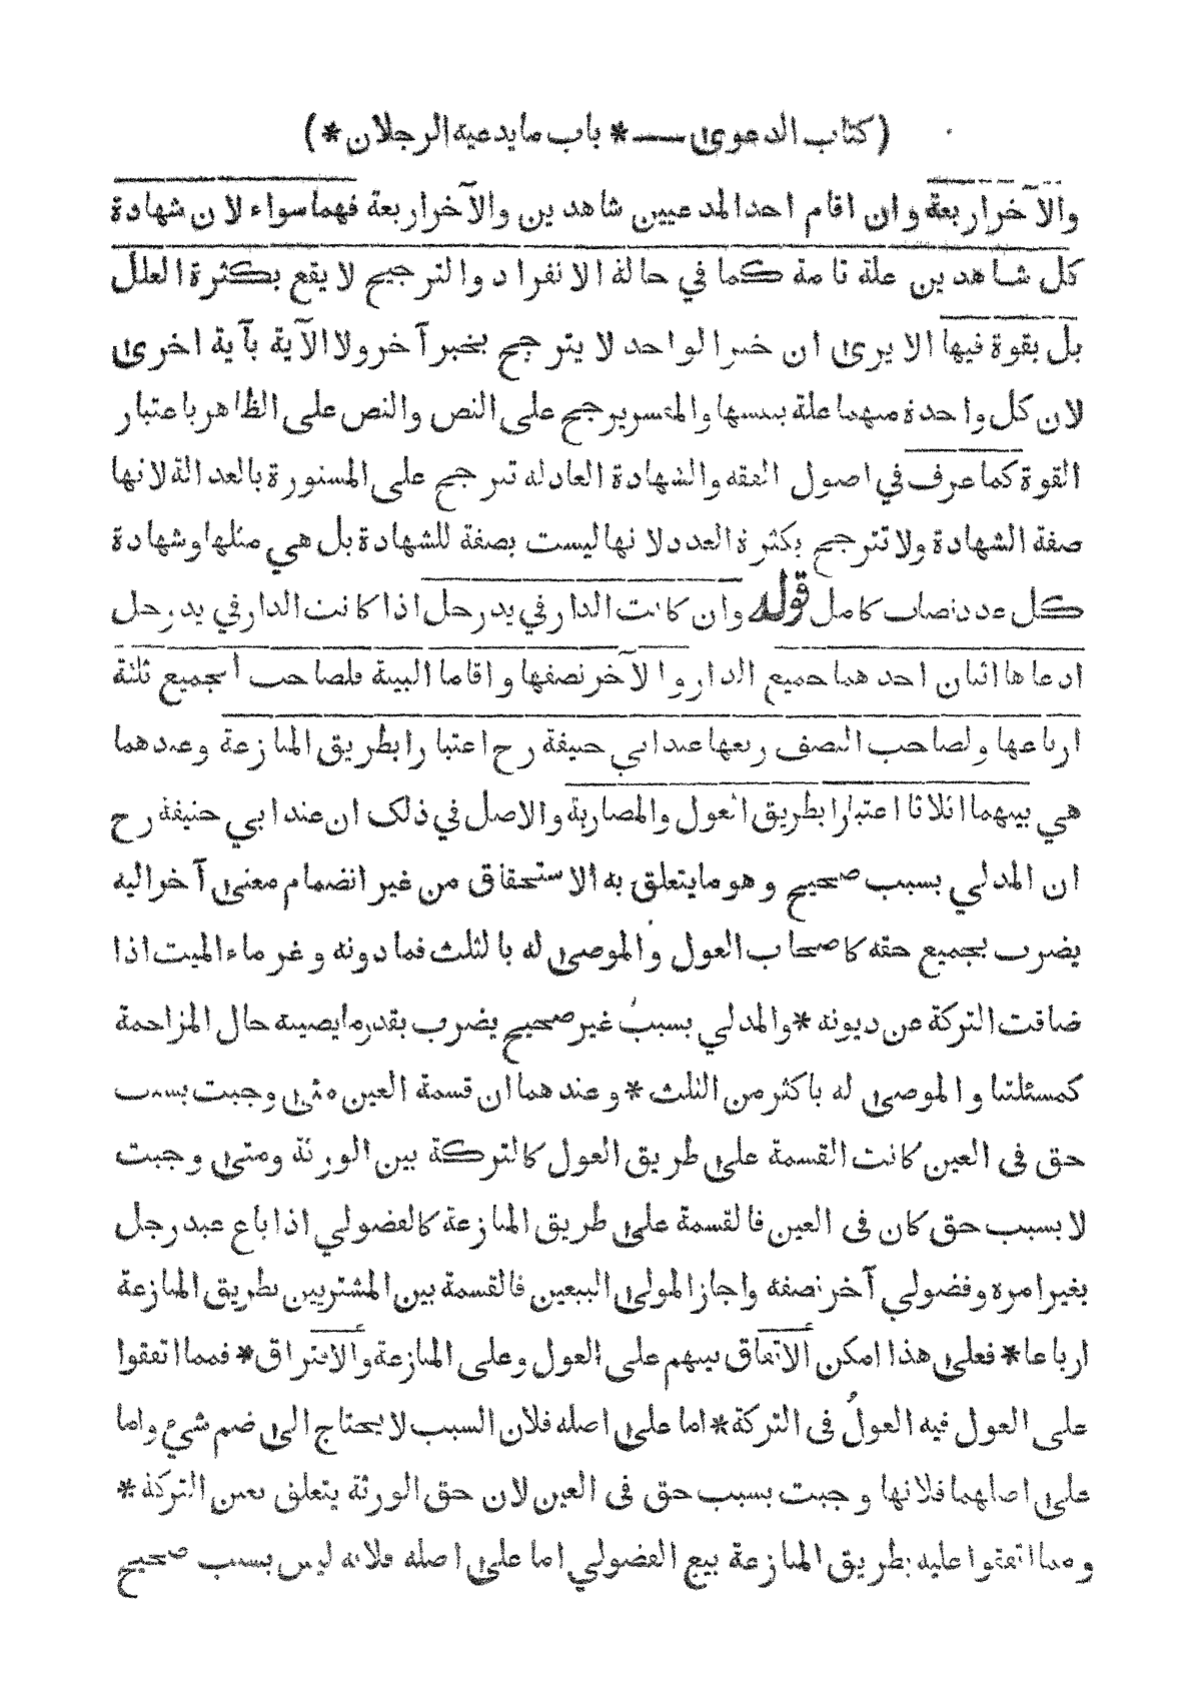 (كتاب الدعوىٰ — * باب ما يدعيه الرجلان *)
والآخر اربعة وان اقام احد المدعيين شاهدين والآخر اربعة فهما سواء لان شهادة
كل شاهدين علة تامة كما في حالة الانفراد والترجيح لا يقع بكثرة العلل
بل بقوة فيها الا يرىٰ ان خبر الواحد لا يترجح بخبر آخر ولا الآية بآية اخرىٰ
لان كل واحدة منهما علة بنفسها والمفسر يرجح على النص والنص على الظاهر باعتبار
القوة كما عرف في اصول الفقه والشهادة العادلة ترجح على المستورة بالعدالة لانها
صفة الشهادة ولا تترجح بكثرة العدد لانها ليست بصفة للشهادة بل هي مثلها وشهادة
كل عدد نصاب كامل قوله وان كانت الدار في يد رجل اذا كانت الدار في يد رجل
ادعاها اثنان احدهما جميع الدار والآخر نصفها واقاما البينة فلصاحب الجميع ثلثة
ارباعها ولصاحب النصف ربعها عند ابي حنيفة رح اعتبارا بطريق المنازعة وعندهما
هي بينهما اثلاثا اعتبارا بطريق العول والمضاربة والاصل في ذلك ان عند ابي حنيفة رح
ان المدلي بسبب صحيح وهو ما يتعلق به الاستحقاق من غير انضمام معنىٰ آخر اليه
يضرب بجميع حقه كاصحاب العول والموصىٰ له بالثلث فما دونه وغرماء الميت اذا
ضاقت التركة عن ديونه * والمدلي بسبب غير صحيح يضرب بقدر ما يصيبه حال المزاحمة
كمسئلتنا والموصىٰ له باكثر من الثلث * وعندهما ان قسمة العين متىٰ وجبت بسبب
حق فى العين كانت القسمة علىٰ طريق العول كالتركة بين الورثة ومتىٰ وجبت
لا بسبب حق كان فى العين فالقسمة علىٰ طريق المنازعة كالفضولي اذا باع عبد رجل
بغير امره وفضولي آخر نصفه واجاز المولىٰ البيعين فالقسمة بين المشتريين بطريق المنازعة
ارباعا * فعلىٰ هذا امكن الاتفاق بينهم على العول وعلى المنازعة والافتراق * فمما اتفقوا
على العول فيه العول فى التركة * اما علىٰ اصله فلان السبب لا يحتاج الىٰ ضم شيء واما
علىٰ اصلهما فلانها وجبت بسبب حق فى العين لان حق الورثة يتعلق بعين التركة *
ومما اتفقوا عليه بطريق المنازعة بيع الفضولي اما علىٰ اصله فلانه ليس بسبب صحيح